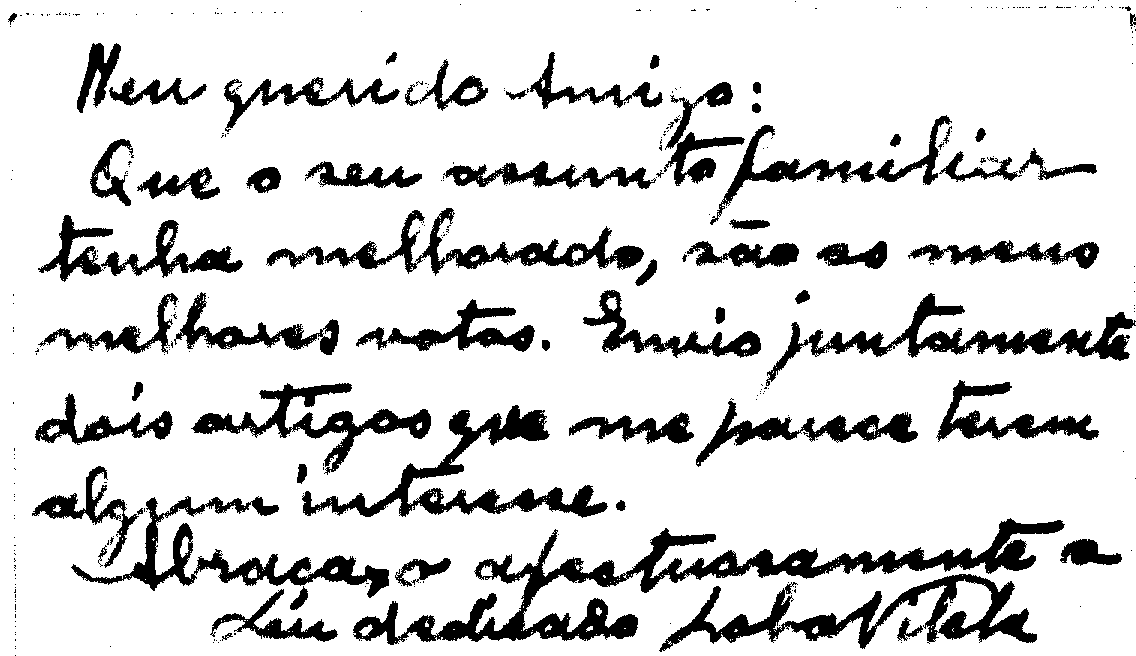 Meu querido Amigo:
Que o seu assunto familiar
tenha melhorado, são os meus
melhores votos. Envio juntamente
dois artigos que me parece terem
algum interesse.
Abraça-o afectuosamente o
Seu dedicado Lobo Vilela